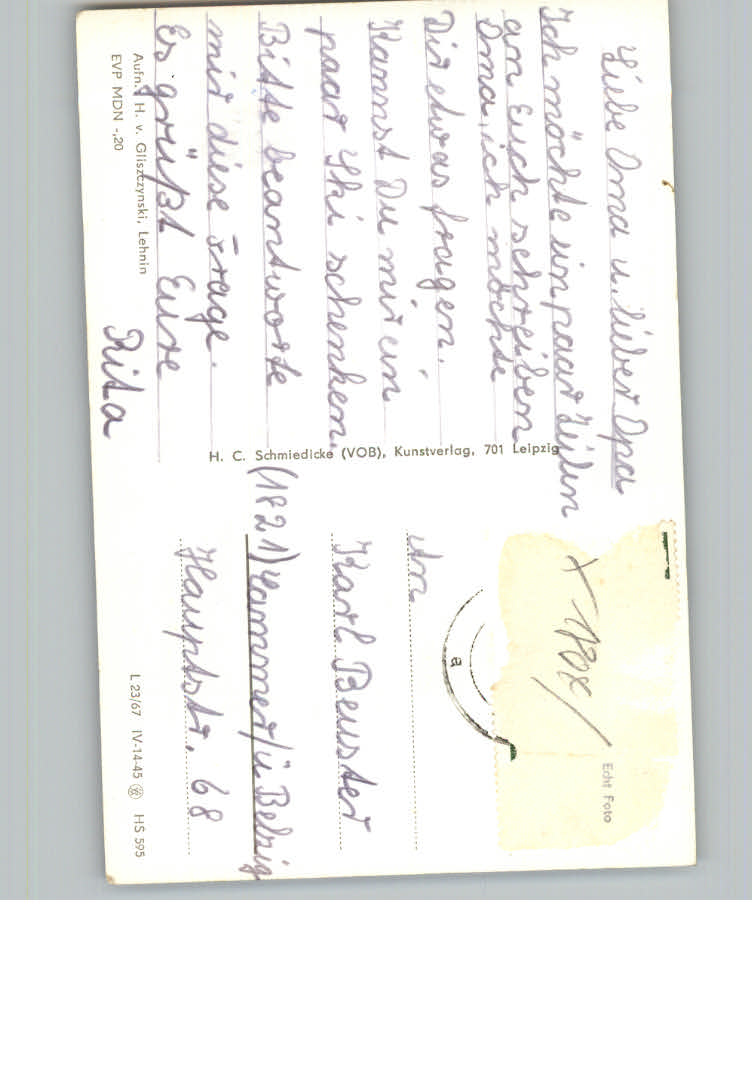 Liebe Oma u. lieber Opa
Ich möchte ein paar Zeilen
an Euch schreiben
Oma, ich möchte
Dir etwas fragen.
Kannst Du mir ein
paar Ski schenken.
Bitte beantworte
mir diese Frage.
Es grüßt Eure
Rita
Aufn.: H. v. Gliszczynski, Lehnin
EVP MDN -,20
H. C. Schmiedicke (VOB), Kunstverlag, 701 Leipzig
Echt Foto
a
An
Karl Beuster
(1821) Hammer/ü Belzig
Hauptstr. 68
L 23/67 IV-14-45 HS 595